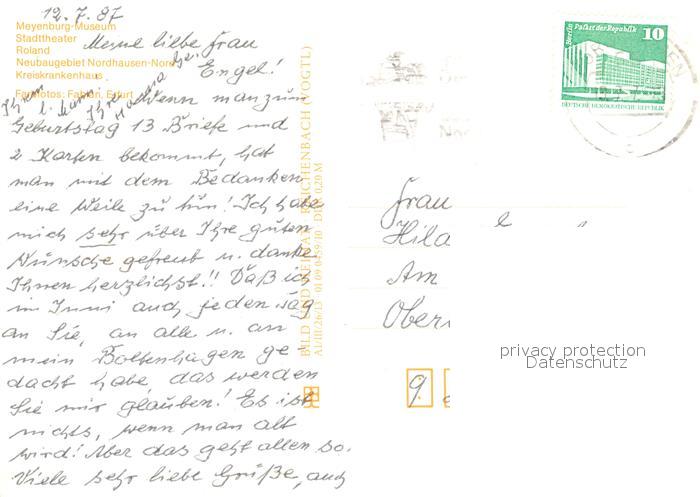 12.7.87
Meyenburg-Museum
Stadttheater
Roland
Neubaugebiet Nordhausen-Nord
Kreiskrankenhaus
Farbfotos: Fabian, Erfurt
Meine liebe Frau
Engel!
Wenn man zum
Geburtstag 13 Briefe und
2 Karten bekommt, hat
man mit dem Bedanken
eine Weile zu tun! Ich habe
mich sehr über Ihre guten
Wünsche gefreut u. danke
Ihnen herzlichst!! Daß ich
im Juni auch jeden Tag
an Sie, an alle u. an
mein Boltenhagen ge
dacht habe, das werden
Sie mir glauben! Es ist
nichts, wenn man alt
wird! Aber das geht allen so.
Viele sehr liebe Grüße, auch
Ihrem
l. Mann Ihre
BILD UND HEIMAT REICHENBACH (VOGTL)
A1/III/26/13 01 09 04 59/10 DDR 0,20 M
Berlin Palast der Republik
10
DEUTSCHE DEMOKRATISCHE REPUBLIK
Frau
Hild
Am
Ober
9
privacy protection
Datenschutz